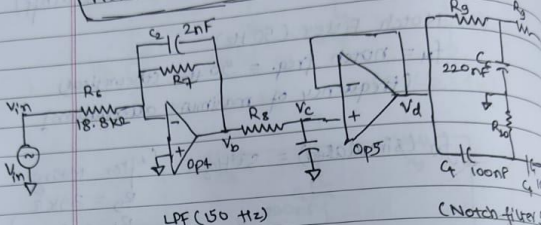 C2
2nF
R7
R6
18.8kΩ
Vin
Vin
-
+
Op4
Vb
R8
Vc
-
+
Op5
Vd
R9
R9
220nF
R10
C4
100nF
LPF (150 Hz)
(Notch filter